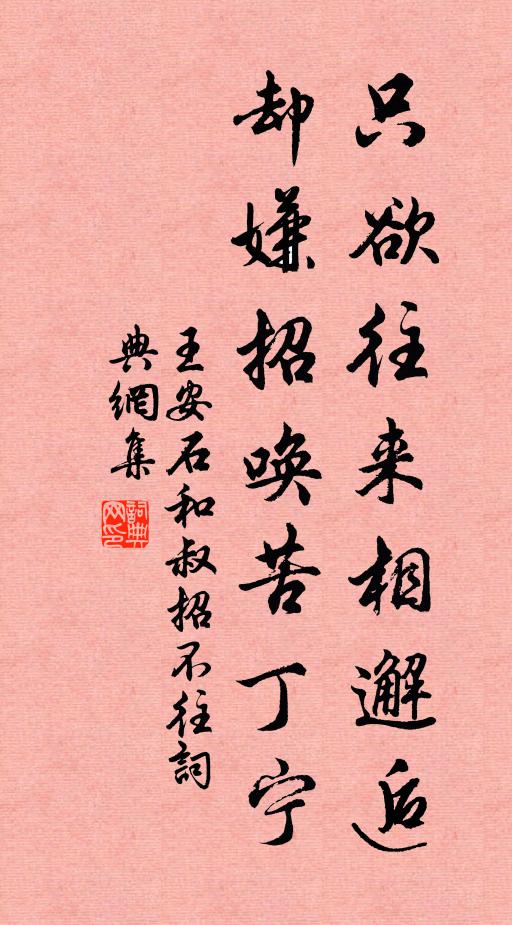 只欲往来相邂逅
却嫌招唤苦丁宁
王安石和叔招不往詞
典網集
詞典网印